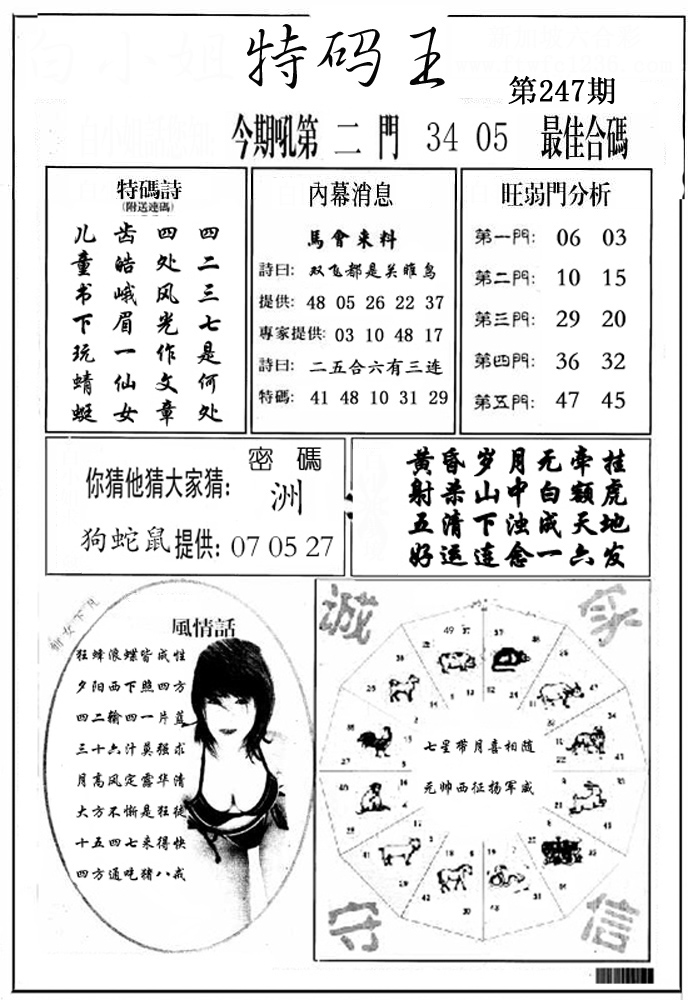 特码王
第247期
今期吼第 二 門 34 05 最佳合碼
特碼詩
(附送連碼)
四二三七是何处
四处风光作文章
齿皓峨眉一仙女
儿童书下玩蜻蜓
內幕消息
馬會来料
詩曰: 双飞都是关雎鸟
提供: 48 05 26 22 37
專家提供: 03 10 48 17
詩曰: 二五合六有三连
特碼: 41 48 10 31 29
旺弱門分析
第一門: 06 03
第二門: 10 15
第三門: 29 20
第四門: 36 32
第五門: 47 45
密碼
你猜他猜大家猜: 洲
狗蛇鼠提供: 07 05 27
黄昏岁月无牵挂
射杀山中白额虎
五清下浊成天地
好运连念一六发
風情話
狂蜂浪蝶皆成性
夕阳西下照四方
四二输四一片蓝
三十六汁莫强求
月高风定露华清
大方不惭是狂徒
十五四七来得快
四方通吃猪八戒
誠
家
守
信
七星带月喜相随
元帅西征扬军威